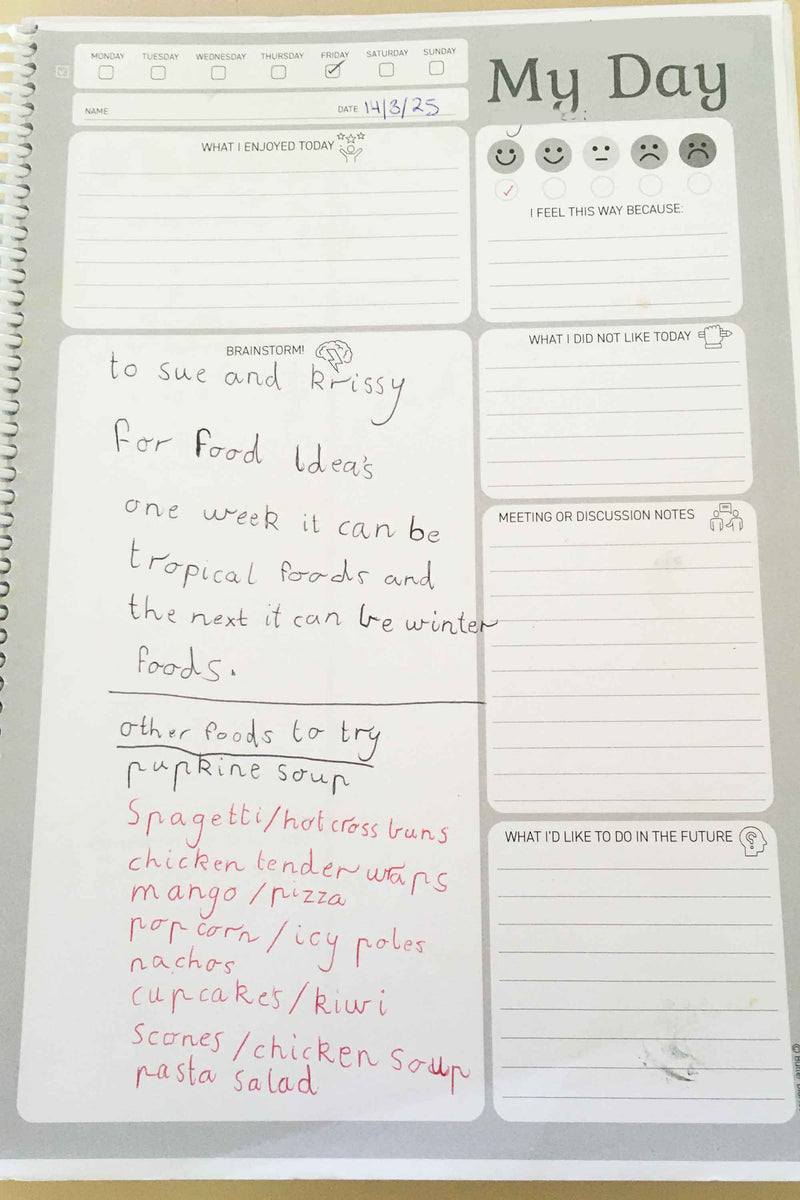 MONDAY TUESDAY WEDNESDAY THURSDAY FRIDAY SATURDAY SUNDAY
NAME DATE 14/3/25
My Day
WHAT I ENJOYED TODAY
I FEEL THIS WAY BECAUSE:
WHAT I DID NOT LIKE TODAY
BRAINSTORM!
to sue and krissy
for food Idea's
one week it can be
tropical foods and
the next it can be winter
foods.
other foods to try
pupkine soup
Spagetti/hot cross buns
chicken tender wraps
mango/pizza
pop corn/icy poles
nachos
cupcakes/kiwi
Scones/chicken soup
pasta salad
MEETING OR DISCUSSION NOTES
WHAT I'D LIKE TO DO IN THE FUTURE